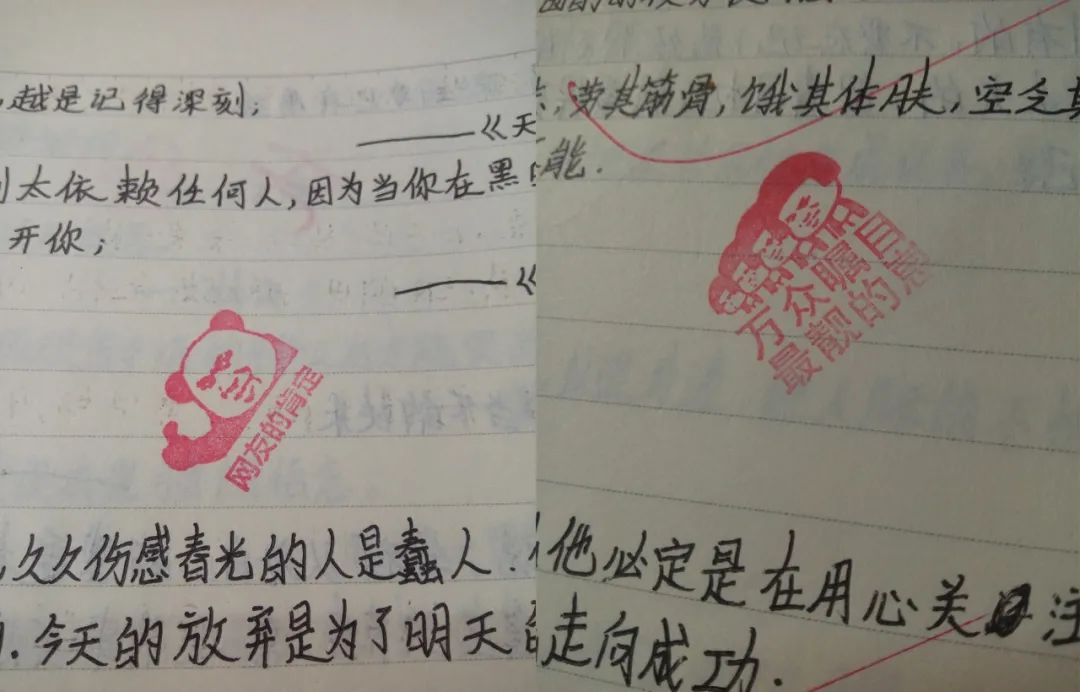 越是记得深刻；
——《天
太依赖任何人，因为当你在黑
开你；
——《
网友的肯定
久久伤感春光的人是蠢人.
.今天的放弃是为了明天
，劳其筋骨，饿其体肤，空乏其
能.
万众瞩目
最靓的崽
他必定是在用心关注
走向成功.